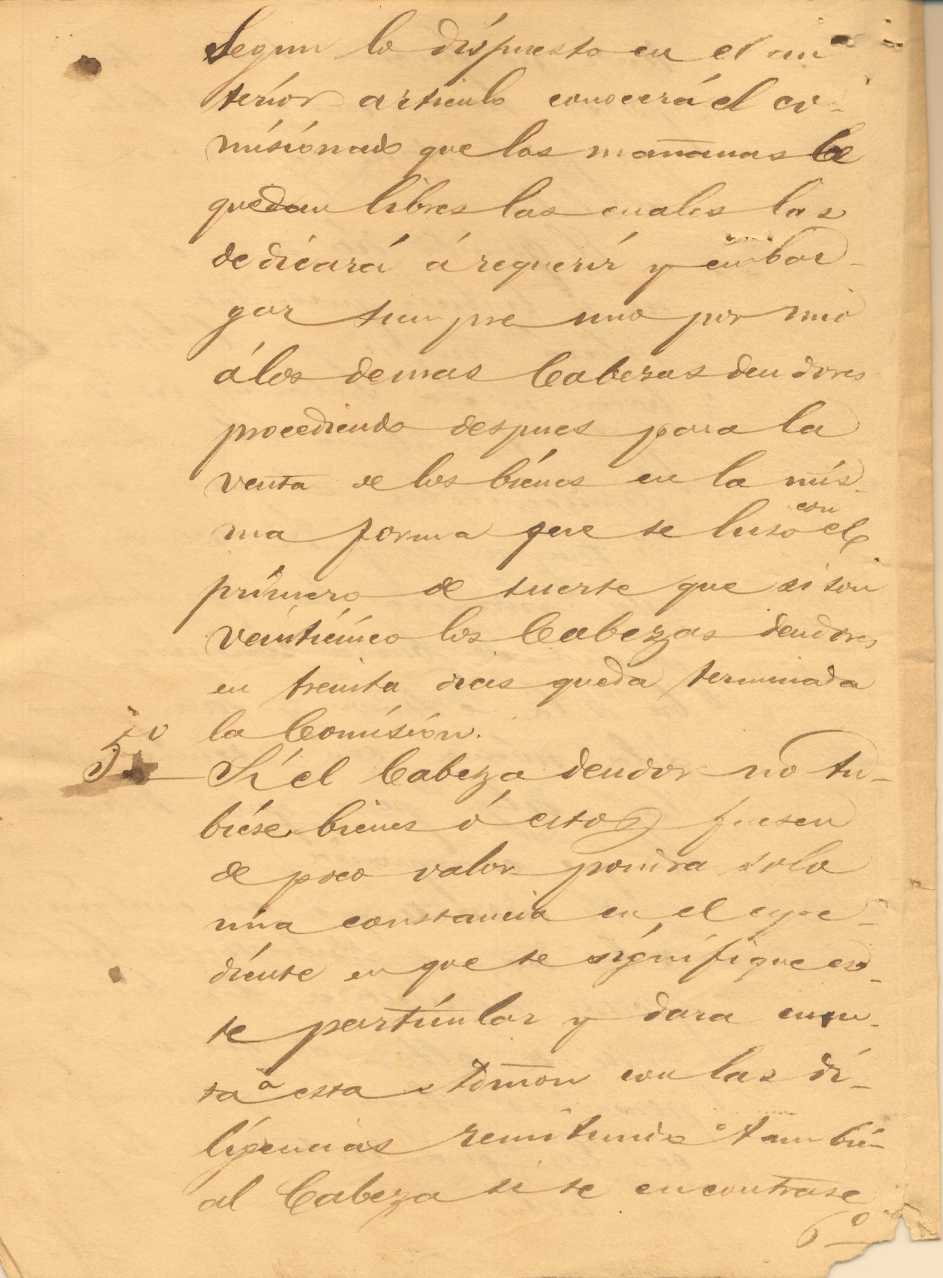 Segun lo dispuesto en el an
terior articulo conocerá el co-
misionado que las mañanas le
quedan libres las cuales las
dedicará á requerir y embar-
gar siempre uno por uno
á los demas Cabezas deudores
procediendo despues para la
venta de los bienes en la mis-
ma forma que se hizo con el
primero de suerte que si son
veinticinco los Cabezas deudores
en treinta dias queda terminada
la Comisión.
5º Si el Cabeza deudor no tu-
biese bienes ó estos fuesen
de poco valor pondra solo
una constancia en el espe-
diente en que se signifique es-
te particular y dara cuen-
ta á esta Admon con las di-
ligencias remitiendo tambien
al Cabeza si se encontrase
6º